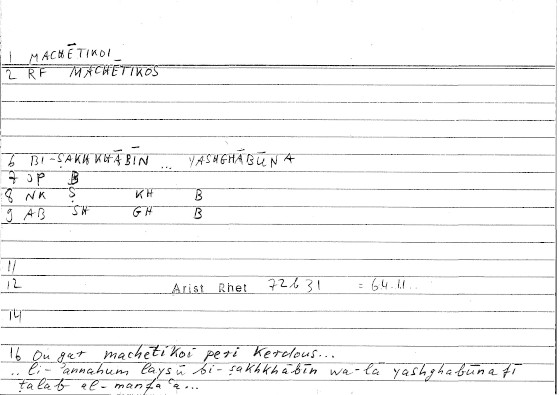 1 MACHĒTIKOI
2 RF MACHĒTIKOS
6 BI-ṢAKHKHĀBĪN ... YASHGHĀBŪNA
7 JP B
8 NK Ṣ KH B
9 AB SH GH B
11
12 Arist Rhet 72b31 = 64.11..
14
16 Ou gar machētikoi peri kerdous...
.. li-'annahum laysū bi-ṣakhkhābīn wa-lā yashghabūna fī
ṭalab al-manfaʿa...